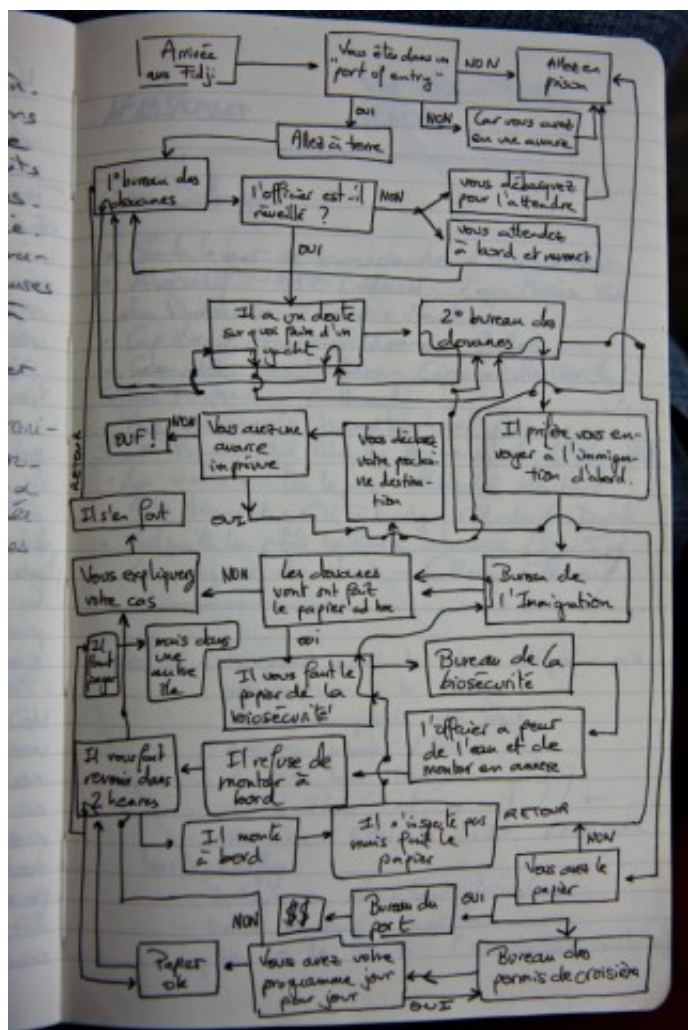 Arrivée
aux Fidji
"Vous êtes dans un
port of entry"
NON
Allez en
prison
OUI
NON
Car vous avez
eu une avarie
Allez à terre
1° bureau des
douanes
l'officier est-il
réveillé ?
NON
vous débarquez
pour l'attendre
vous attendez
à bord et revenez
OUI
Il a un doute
sur quoi faire d'un
yacht
2° bureau des
douanes
OUF !
NON
Vous avez une
avarie
imprévue
Vous déclarez
votre prochai-
ne destina-
tion
Il préfère vous en-
voyer à l'immigra-
tion d'abord.
RETOUR
Il s'en fout
OUI
Vous expliquez
votre cas
NON
Les douanes
vont ont fait
le papier ad hoc
Bureau de
l'Immigration
Il
faut
payer
mais dans
une
autre
île
OUI
Il vous faut le
papier de la
biosécurité
Bureau de la
biosécurité
Il vous fait
revenir dans
2 heures
Il refuse de
monter à
bord
l'officier a peur
de l'eau et de
monter en annexe
Il monte
à bord
Il n'inspecte pas
mais fait le
papier
RETOUR
NON
Vous avez le
papier
NON
$$
Bureau du
port
OUI
Papier
ok
Vous avez votre
programme jour
pour jour
OUI
Bureau des
permis de croisière